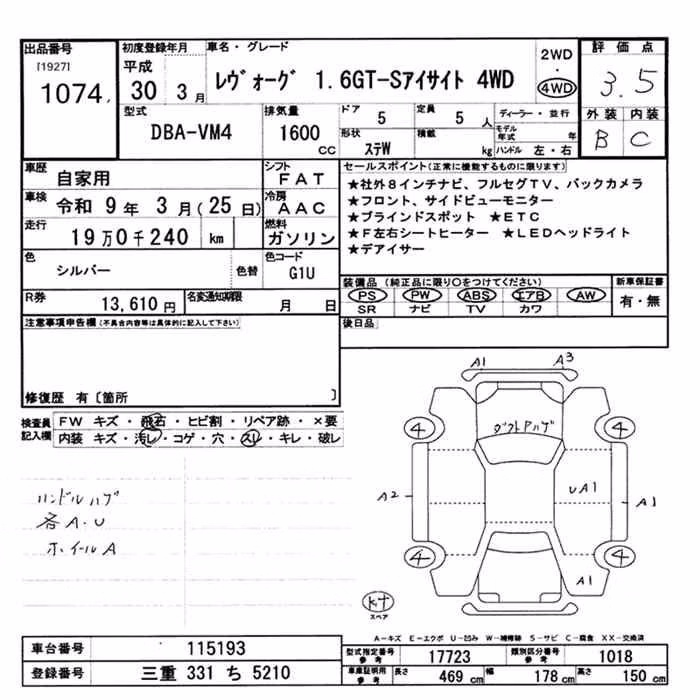 出品番号
[1927]
1074
初度登録年月
平成
30 3月
車名・グレード
ﾚｳﾞｫｰｸﾞ 1.6GT-Sｱｲｻｲﾄ 4WD
2WD
・
4WD
評価点
3.5
外装 内装
B C
型式
DBA-VM4
排気量
1600
CC
ドア
5
定員
5 人
ディーラー・並行
形状
ｽﾃW
積載
kg
モデル年式 年
ハンドル 左・右
車歴
自家用
シフト
FAT
車検
令和 9年 3月(25日)
冷房
AAC
走行
19万0千240 km
燃料
ガソリン
色
シルバー
色替
色コード
G1U
R券
13,610円
名変通知期限
月 日
セールスポイント(正常に機能するものに限ります)
★社外8インチナビ、フルセグTV、バックカメラ
★フロント、サイドビューモニター
★ブラインドスポット ★ETC
★F左右シートヒーター ★LEDヘッドライト
★デアイサー
装備品(純正品に限り○をつけてください)
PS PW ABS エアB AW
SR ナビ TV カワ
新車保証書
有・無
後日品
注意事項申告欄(不具合内容等は具体的に記入して下さい)
修復歴 有〔箇所 〕
検査員
記入欄
FW キズ・飛石・ヒビ割・リペア跡・×要
内装 キズ・汚レ・コゲ・穴・スレ・キレ・破レ
ハンドルハゲ
各A・U
ホイールA
A1
A3
ダクトハゲ
4
4
A2
UA1
A1
4
4
A1
スペア
A-キズ E-エクボ U-凹み W-補修跡 S-サビ C-腐食 XX-交換済
車台番号
115193
登録番号
三重 331 ち 5210
型式指定番号
参考
17723
類別区分番号
参考
1018
車庫証明用
参考
長さ 469 cm 幅 178 cm 高さ 150 cm